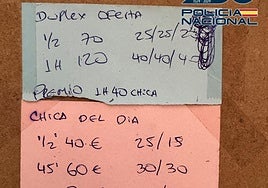 POLICIA
NACIONAL
DUPLEX OFERTA
1/2 70 25/25/2
1H 120 40/40/4
PREMIO 1H 40 CHICA
CHICA DEL DIA
1/2' 40 € 25/15
45' 60 € 30/30